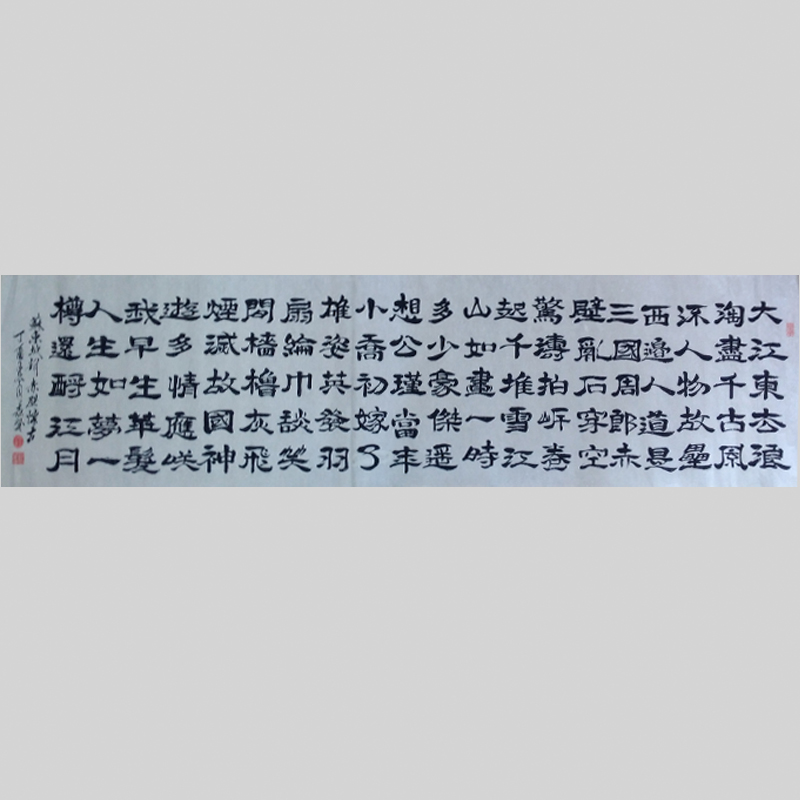 大江東去浪
淘盡千古風
流人物故壘
西邊人道是
三國周郎赤
壁亂石穿空
驚濤拍岸卷
起千堆雪江
山如畫一時
多少豪傑遥
想公瑾當年
小喬初嫁了
雄姿英發羽
扇綸巾談笑
間檣櫓灰飛
煙滅故國神
遊多情應咲
我早生華髮
人生如夢一
樽還酹江月
蘇東坡詞赤壁懷古
丁酉